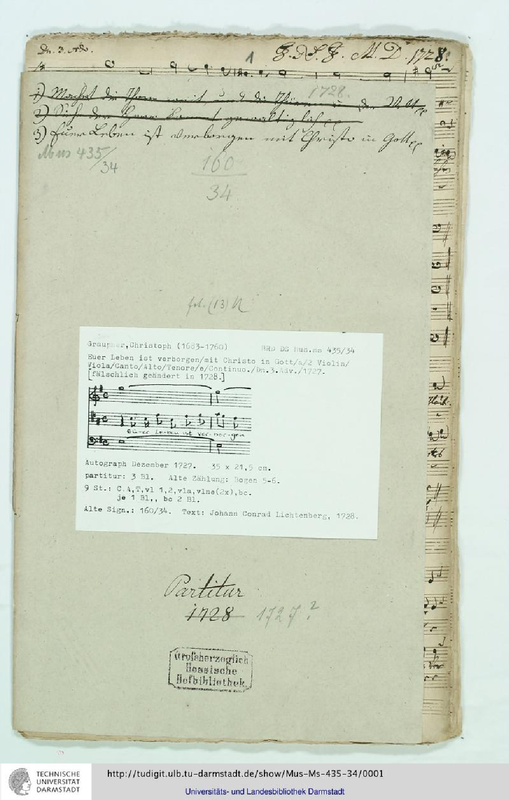 Dn. 3. Adv. 1 F. D. S. F. M. D. 1728.
1) Machet die Thore weit u. d. die Thüren in der Welt 1728.
3) Euer Leben ist verborgen mit Christo in Gott
Mus 435/34
160
34
fol. (13) U
Graupner,Christoph (1683-1760) HHS DS Mus.ms 435/34
Euer Leben ist verborgen/mit Christo in Gott/a/2 Violin/
Viola/Canto/Alto/Tenore/e/Continuo./Dn.3.Adv./1727.
[fälschlich geändert in 1728.]
Euer Leben ist verborgen
Autograph Dezember 1727. 35 x 21,5 cm.
partitur: 3 Bl. Alte Zählung: Bogen 5-6.
9 St.: C,A,T,vl 1,2,vla,vlne(2x),bc.
je 1 Bl., bc 2 Bl.
Alte Sign.: 160/34. Text: Johann Conrad Lichtenberg, 1728.
Partitur
1728 1727?
Großherzoglich
Hessische
Hofbibliothek.
TECHNISCHE
UNIVERSITÄT
DARMSTADT
http://tudigit.ulb.tu-darmstadt.de/show/Mus-Ms-435-34/0001
Universitäts- und Landesbibliothek Darmstadt